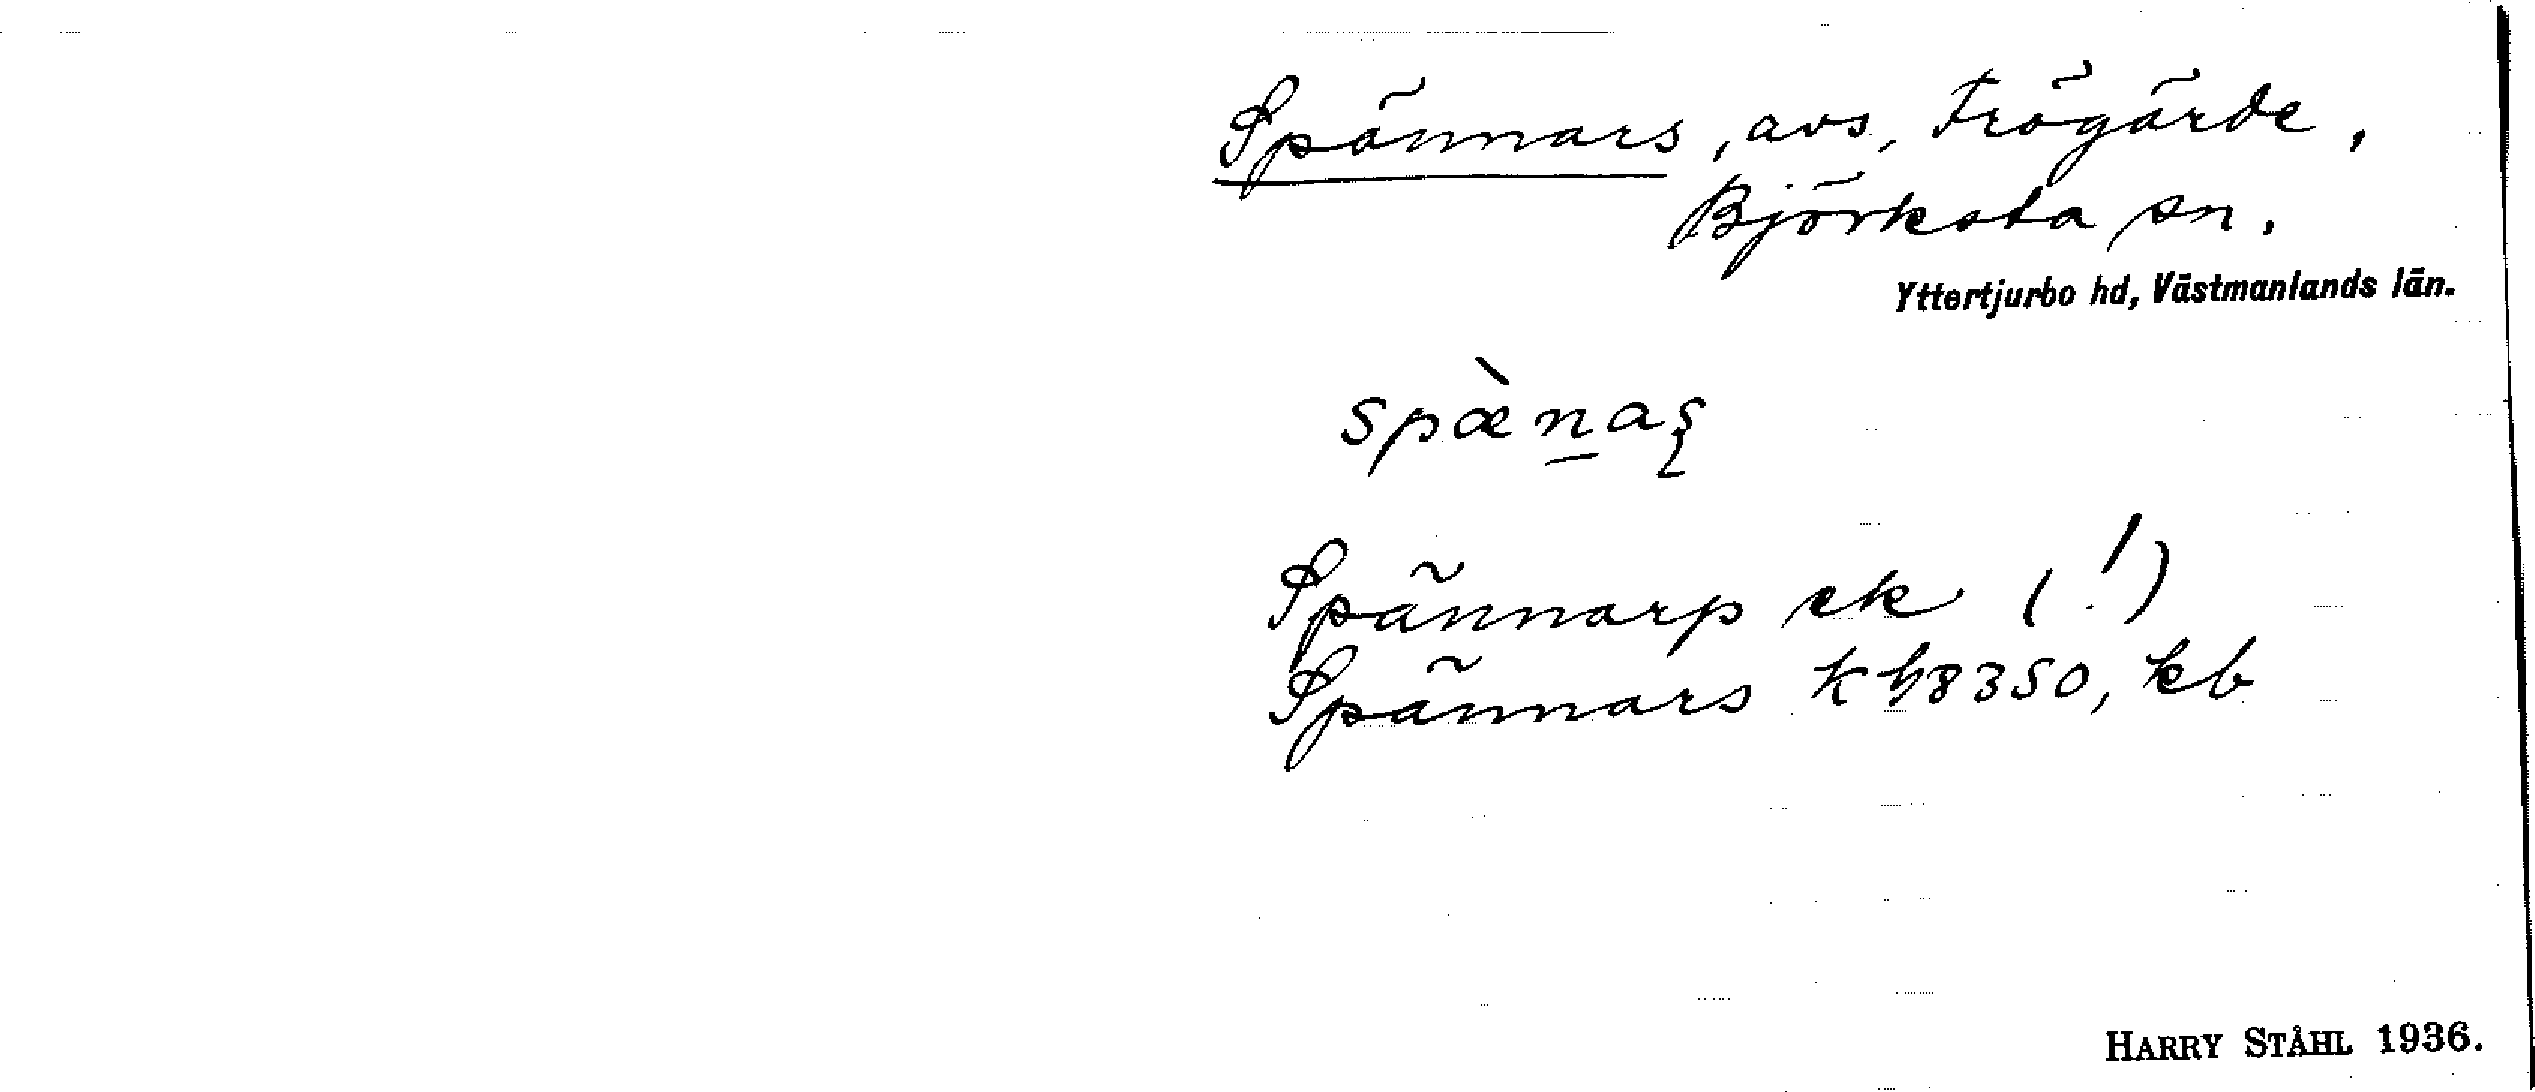 Spännars, avs, Frögärde,
Björksta sn.
Yttertjurbo hd, Västmanlands län.
spæ̀n̲aʂ
Spännarp ek (!)
Spännars K h8350, kb
HARRY STÅHL 1936.